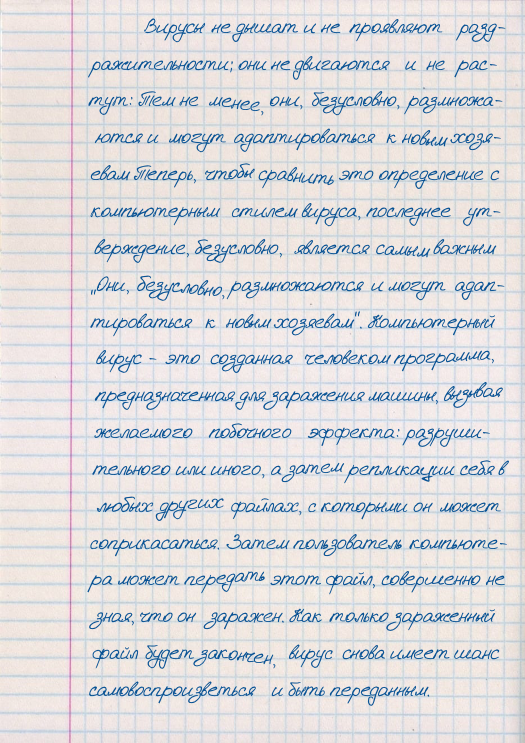 Вирусы не дышат и не проявляют разд-
ражительности; они не двигаются и не рас-
тут: Тем не менее, они, безусловно, размножа-
ются и могут адаптироваться к новым хозя-
евам Теперь, чтобы сравнить это определение с
компьютерным стилем вируса, последнее ут-
верждение, безусловно, является самым важным
„Они, безусловно, размножаются и могут адап-
тироваться к новым хозяевам". Компьютерный
вирус – это созданная человеком программа,
предназначенная для заражения машины, вызывая
желаемого побочного эффекта: разруши-
тельного или иного, а затем репликации себя в
любых других файлах, с которыми он может
соприкасаться. Затем пользователь компьюте-
ра может передать этот файл, совершенно не
зная, что он заражен. Как только зараженный
файл будет закончен, вирус снова имеет шанс
самовоспроизветься и быть переданным.